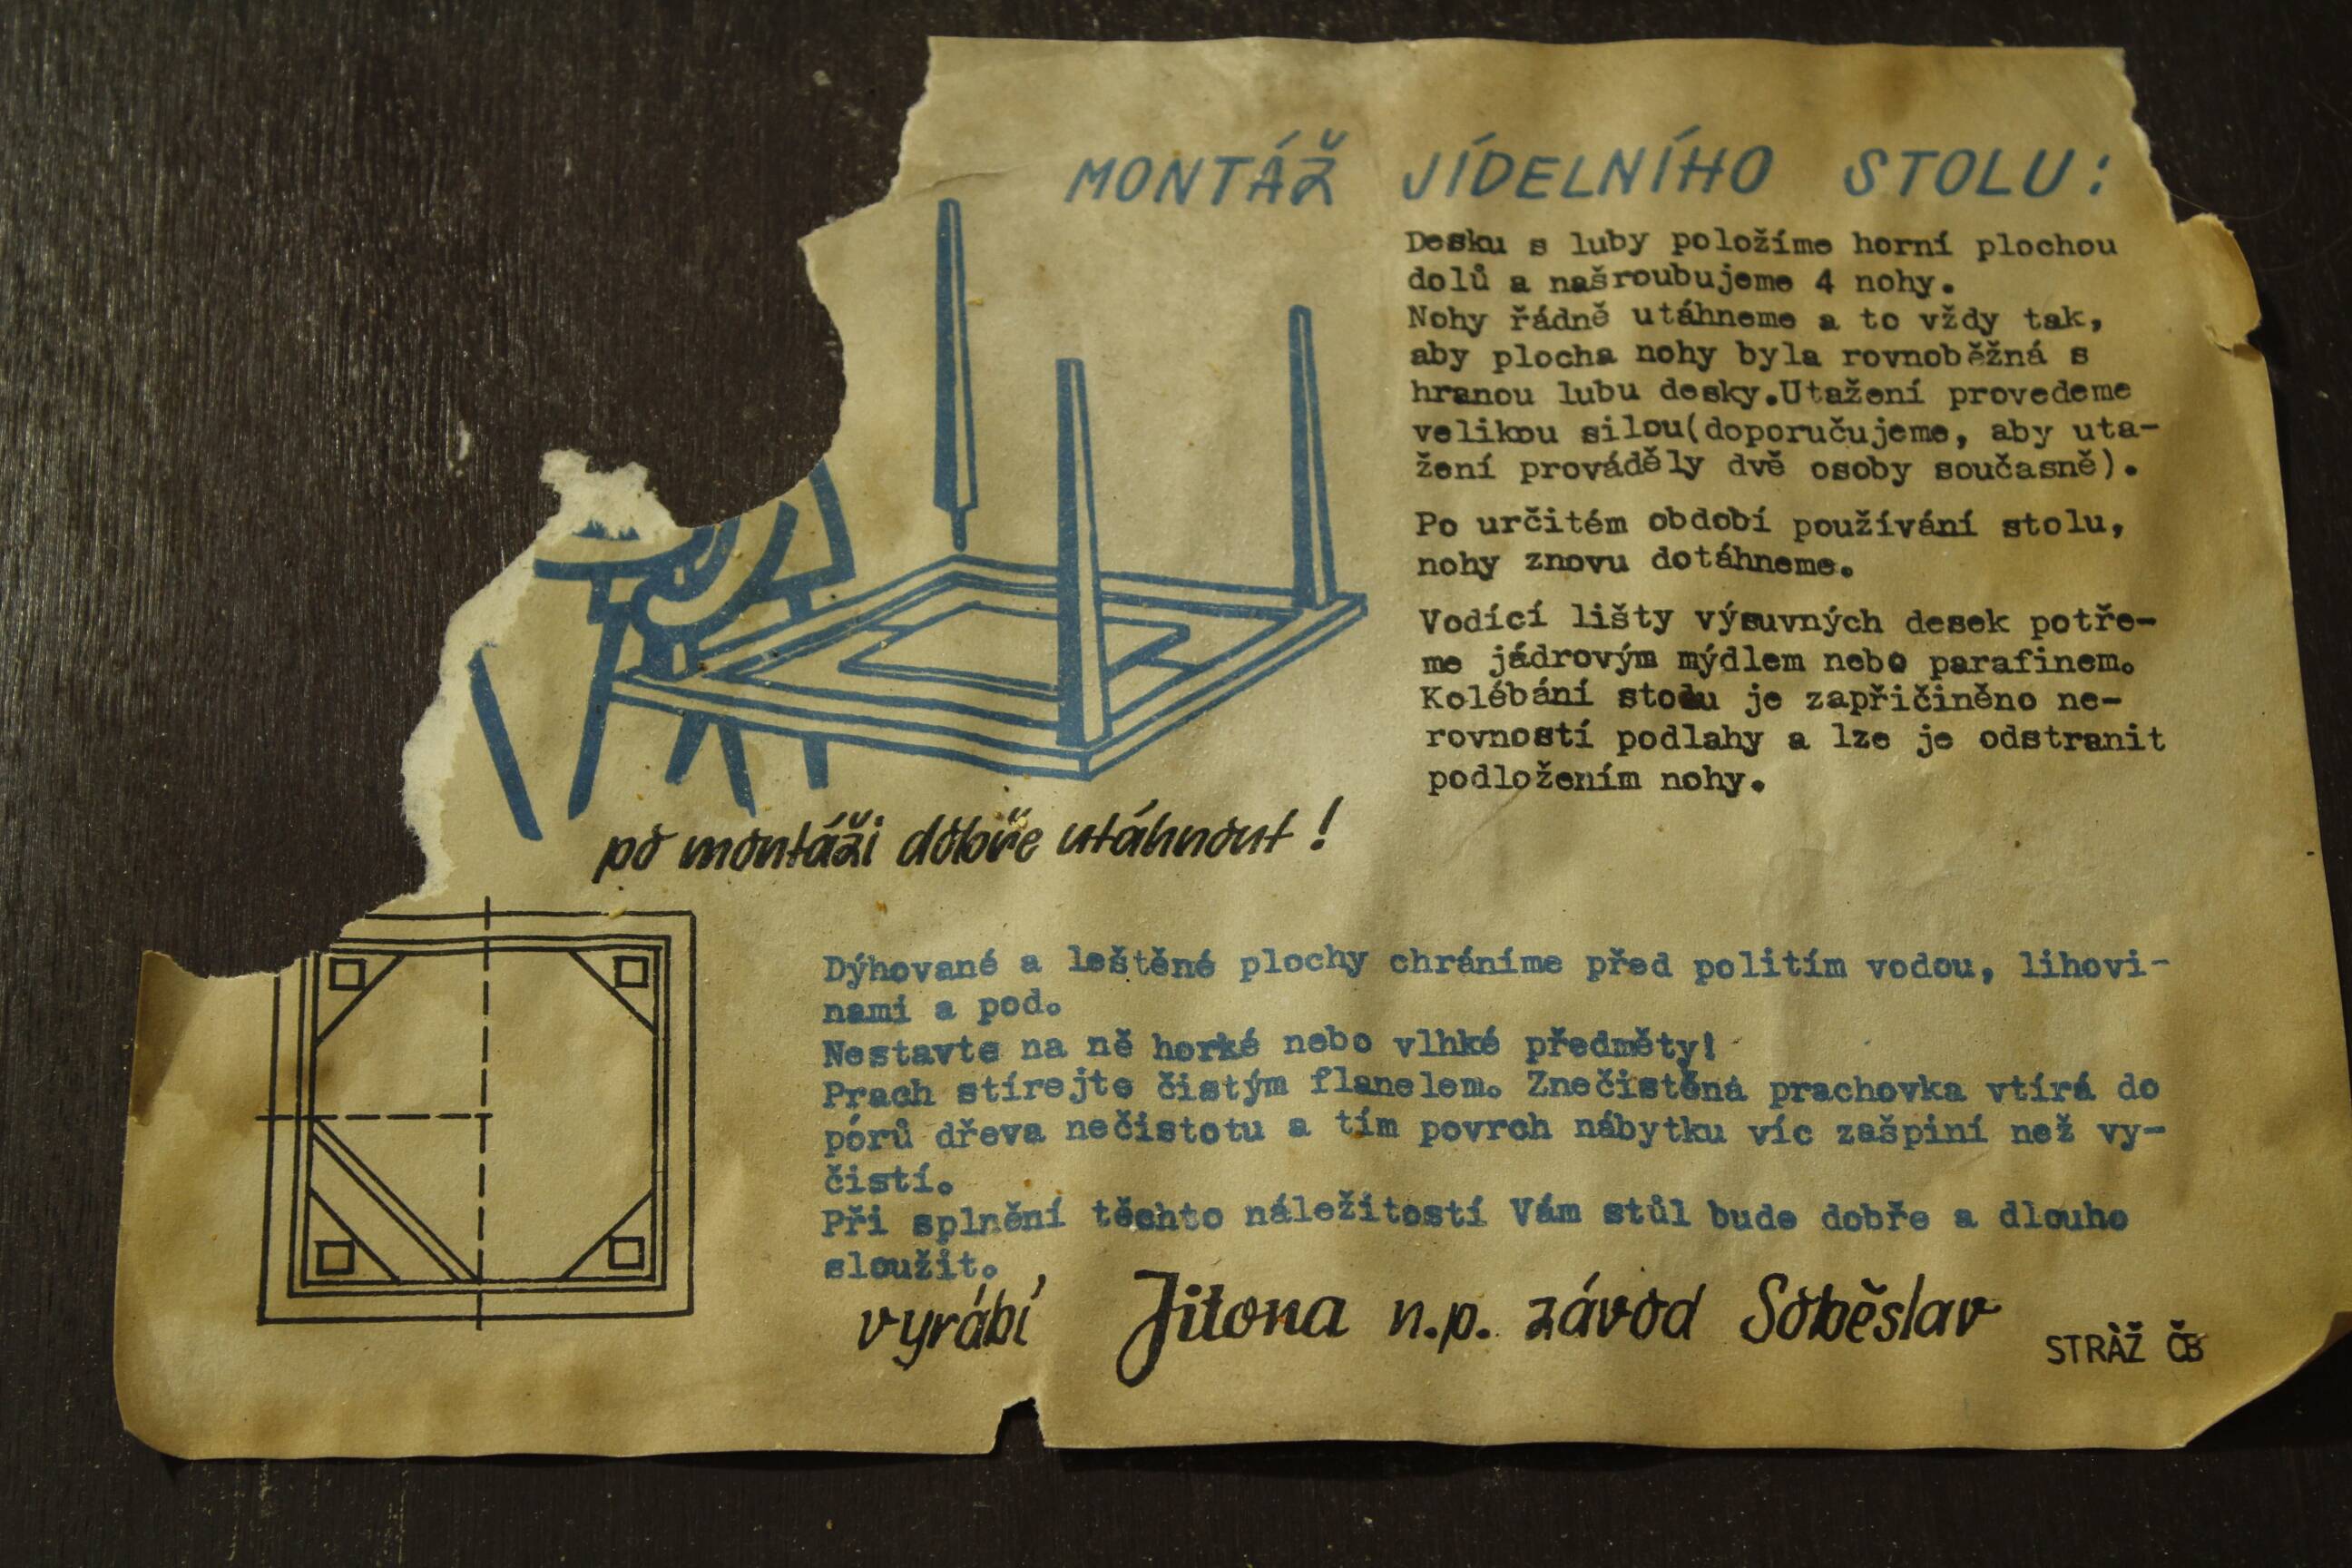 MONTÁŽ JÍDELNÍHO STOLU:
Desku s luby položíme horní plochou
dolů a našroubujeme 4 nohy.
Nohy řádně utáhneme a to vždy tak,
aby plocha nohy byla rovnoběžná s
hranou lubu desky.Utažení provedeme
velikou silou(doporučujeme, aby uta-
žení prováděly dvě osoby současně).
Po určitém období používání stolu,
nohy znovu dotáhneme.
Vodící lišty výsuvných desek potře-
me jádrovým mýdlem nebo parafinem.
Kolébání stolu je zapřičiněno ne-
rovností podlahy a lze je odstranit
podložením nohy.
po montáži dobře utáhnout!
Dýhované a leštěné plochy chráníme před politím vodou, lihovi-
nami a pod.
Nestavte na ně horké nebo vlhké předměty!
Prach stírejte čistým flanelem. Znečistěná prachovka vtírá do
pórů dřeva nečistotu a tím povrch nábytku víc zašpiní než vy-
čistí.
Při splnění těchto náležitostí Vám stůl bude dobře a dlouho
sloužit.
vyrábí Jitona n.p. závod Soběslav
STRÀŽ ČB